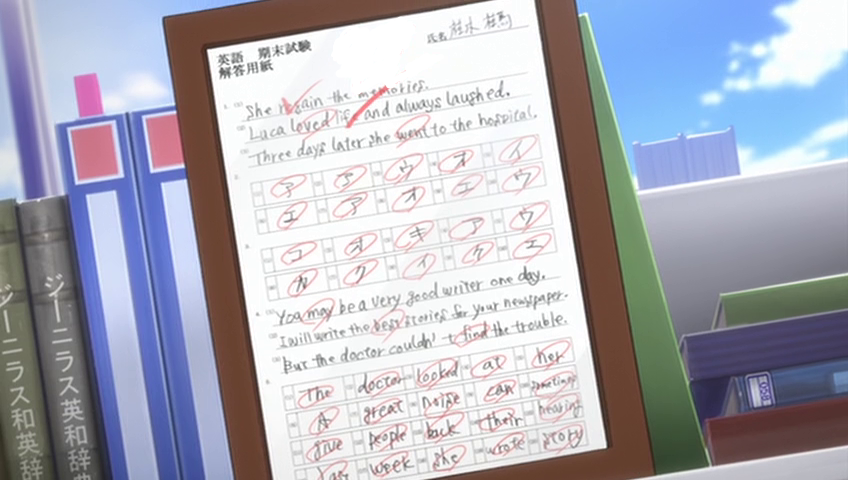 英語 期末試験
解答用紙
氏名 桂木 桂馬
She regain the memories.
Luca loved life and always laughed.
Three days later she went to the hospital.
ア ア ウ オ イ
エ ア オ エ ウ
コ オ キ ア ウ
カ ク イ ケ エ
You may be a very good writer one day.
I will write the best stories for your newspaper.
But the doctor couldn't find the trouble.
The doctor looked at her
A great noise can sometimes
give people back their hearing
week she wrote story
ジーニラス和英辞
ジーニラス英和辞典